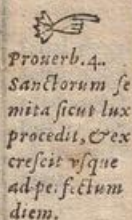 Prouerb. 4.
Sanctorum se
mita sicut lux
procedit, & ex
crescit vsque
ad perfectum
diem.